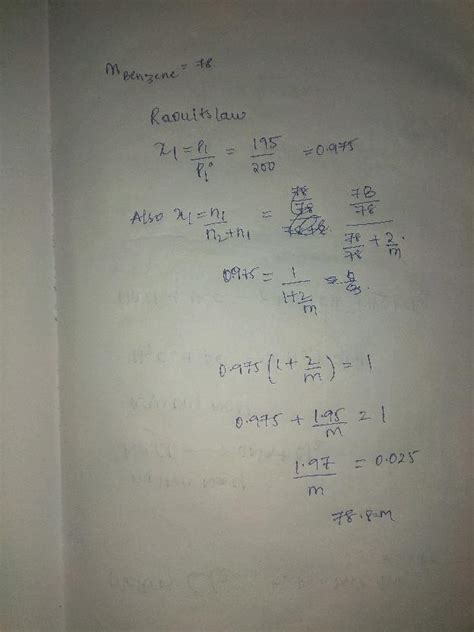 M Benzene = 78
Raoultslaw
x1 = P1/P1° = 195/200 = 0.975
Also x1 = n1/n2+n1 = 78/78 / 78/78 + 2/m
0.975 = 1/1+2/m
0.975(1+2/m) = 1
0.975 + 1.95/m = 1
1.97/m = 0.025
78.8=M